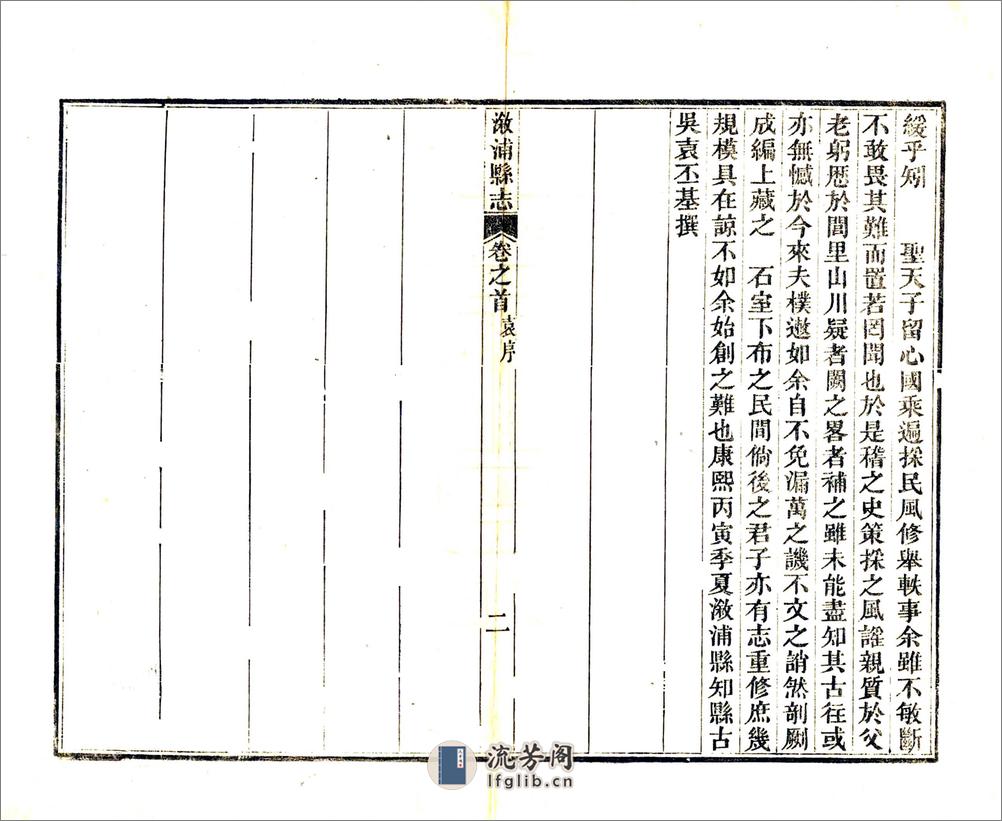 緩乎矧　　聖天子留心國乘遍採民風修舉軼事余雖不敏斷
不敢畏其難而置若罔聞也於是稽之史策採之風謠親質於父
老躬歷於閭里山川疑者闕之畧者補之雖未能盡知其古往或
亦無憾於今來夫樸遬如余自不免漏萬之譏不文之誚然剞劂
成編上藏之　石室下布之民間倘後之君子亦有志重修庶幾
規模具在諒不如余始創之難也康熙丙寅季夏漵浦縣知縣古
吳袁丕基撰
漵浦縣志　卷之首　袁序　二
流芳阁
lfglib.cn